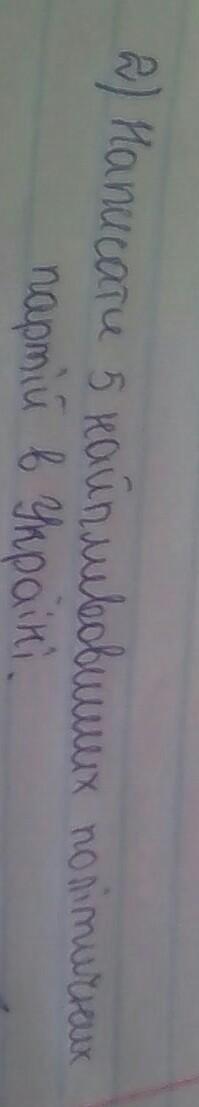 2) Написати 5 найпливовіших політичних
партій в Україні.